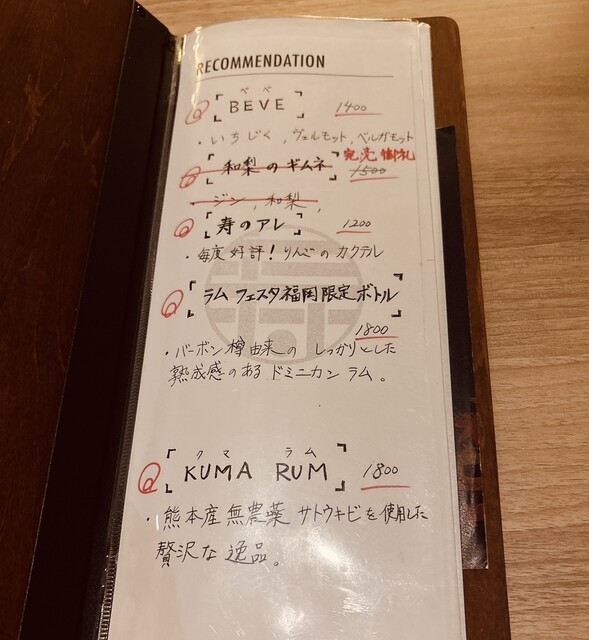 RECOMMENDATION
べべ
BEVE 1400
・いちじく,ヴェルモット,ベルガモット
和梨のギムネ 完売御礼 1500
・ジン,和梨,
寿のアレ 1200
・毎度好評!りんごのカクテル
ラムフェスタ福岡限定ボトル
1800
・バーボン樽由来のしっかりとした
熟成感のあるドミニカンラム。
クマ ラム
KUMA RUM 1800
・熊本産無農薬サトウキビを使用した
贅沢な逸品。